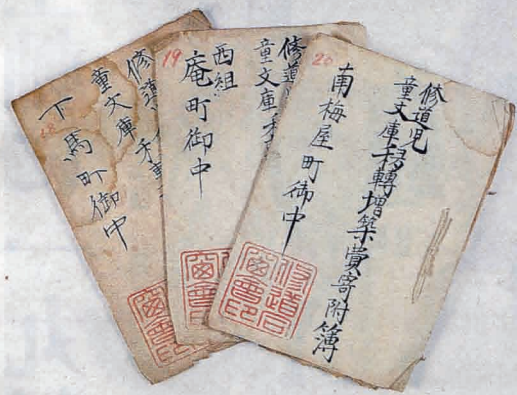 修道児
童文庫移轉増築費寄附簿
南梅屋町御中
20
修道
童文庫移
西組
庵町御中
19
修道
童文庫移
下馬町御中